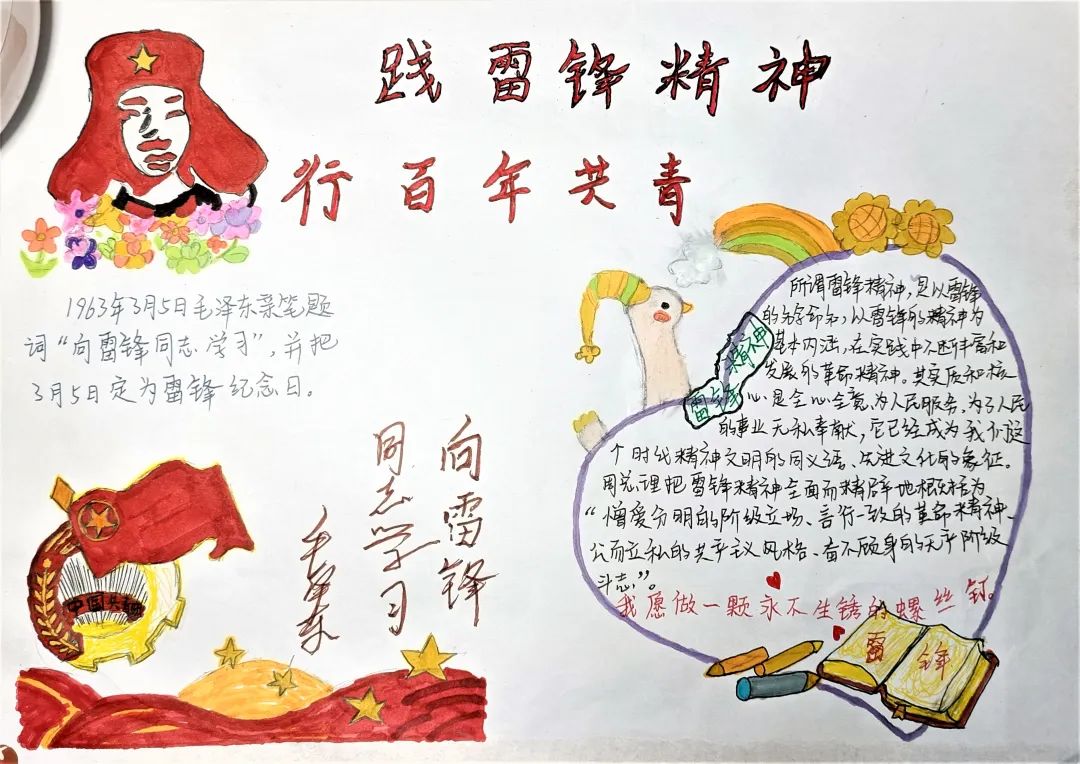 践雷锋精神
行百年共青
1963年3月5日毛泽东亲笔题
词“向雷锋同志学习”,并把
3月5日定为雷锋纪念日。
向雷锋
同志学习
毛泽东
中国共青团
雷锋精神
所谓雷锋精神,是以雷锋
的名字命名,以雷锋的精神为
基本内涵,在实践中不断丰富和
发展的革命精神。其实质和核
心是全心全意为人民服务,为了人民
的事业无私奉献,它已经成为我们这
个时代精神文明的同义语、先进文化的象征。
周总理把雷锋精神全面而精辟地概括为
“憎爱分明的阶级立场、言行一致的革命精神、
公而忘私的共产主义风格、奋不顾身的无产阶级
斗志”。
我愿做一颗永不生锈的螺丝钉。
雷锋